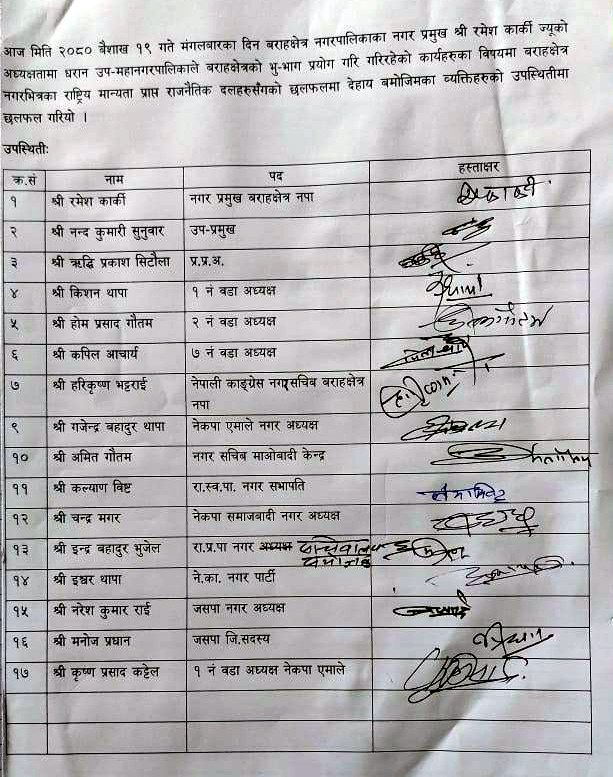 आज मिति २०८० बैशाख १९ गते मंगलबारका दिन बराहक्षेत्र नगरपालिकाका नगर प्रमुख श्री रमेश कार्की ज्यूको
अध्यक्षतामा धरान उप-महानगरपालिकाले बराहक्षेत्रको भु-भाग प्रयोग गरि गरिरहेको कार्यहरुका विषयमा बराहक्षेत्र
नगरभित्रका राष्ट्रिय मान्यता प्राप्त राजनैतिक दलहरुसँगको छलफलमा देहाय बमोजिमका व्यक्तिहरुको उपस्थितीमा
छलफल गरियो ।
उपस्थितीः
क्र.सं नाम पद हस्ताक्षर
१ श्री रमेश कार्की नगर प्रमुख बराहक्षेत्र नपा
२ श्री नन्द कुमारी सुनुवार उप-प्रमुख
३ श्री ऋद्धि प्रकाश सिटौला प्र.प्र.अ.
४ श्री किशन थापा १ नं वडा अध्यक्ष
५ श्री होम प्रसाद गौतम २ नं वडा अध्यक्ष
६ श्री कपिल आचार्य ७ नं वडा अध्यक्ष
७ श्री हरिकृष्ण भट्टराई नेपाली काङ्ग्रेस नगरसचिब बराहक्षेत्र
नपा
९ श्री गजेन्द्र बहादुर थापा नेकपा एमाले नगर अध्यक्ष
१० श्री अमित गौतम नगर सचिब माओबादी केन्द्र
११ श्री कल्याण विष्ट रा.स्व.पा. नगर सभापति
१२ श्री चन्द्र मगर नेकपा समाजवादी नगर अध्यक्ष
१३ श्री इन्द्र बहादुर भुजेल रा.प्र.पा नगर अध्यक्ष
१४ श्री इश्वर थापा ने.का. नगर पार्टी
१५ श्री नरेश कुमार राई जसपा नगर अध्यक्ष
१६ श्री मनोज प्रधान जसपा जि.सदस्य
१७ श्री कृष्ण प्रसाद कट्टेल १ नं वडा अध्यक्ष नेकपा एमाले